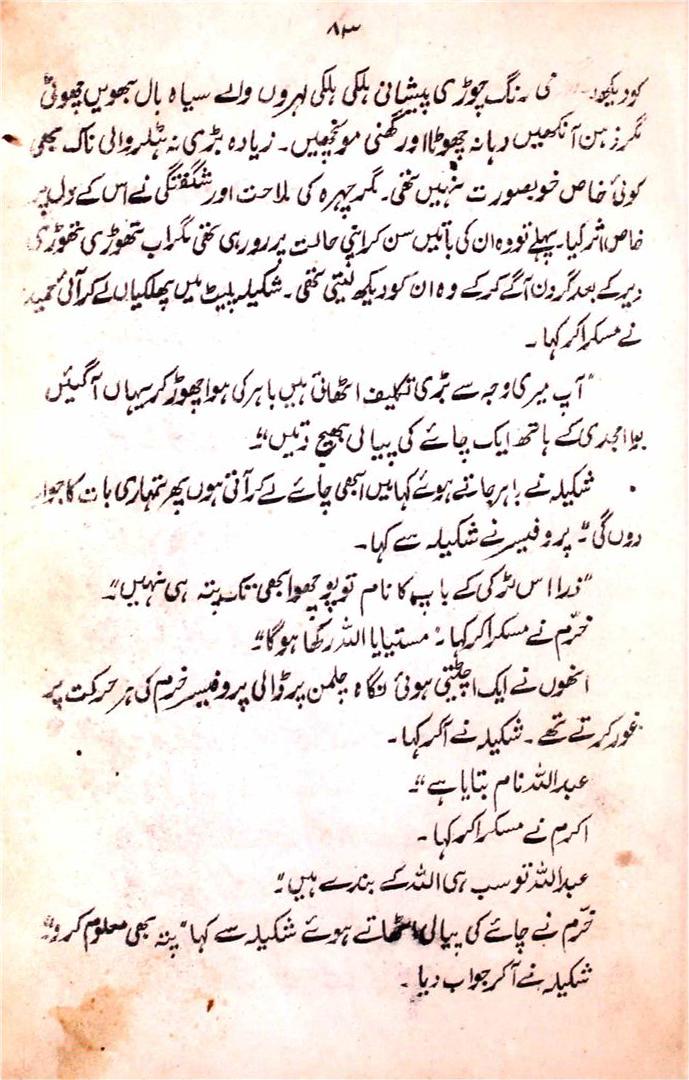 ۸۳
کو دیکھا۔ رنگ چوڑی پیشانی ہلکی ہلکی لہروں والے سیاہ بال بھویں چھوٹی
مگر ذہن آنکھیں دہانہ چھوٹا اور گھنی مونچھیں۔ زیادہ بڑی نہ ہٹلر والی ناک بھی
کوئی خاص خوبصورت نہیں تھی۔ مگر چہرہ کی ملاحت اور شگفتگی نے اس کے دل پر
خاص اثر کیا۔ پہلے تو وہ ان کی باتیں سن کر اپنی حالت پر رو رہی تھی مگر اب تھوڑی تھوڑی
دیر کے بعد گردن آگے کر کے وہ ان کو دیکھ لیتی تھی۔ شکیلہ پلیٹ میں پھلکیاں لے کر آئی حمید
نے مسکرا کر کہا۔
"آپ میری وجہ سے بڑی تکلیف اٹھاتی ہیں باہر کی ہوا چھوڑ کر یہاں آ گئیں
بوا امجدی کے ہاتھ ایک چائے کی پیالی بھیج دتیں"۔
شکیلہ نے باہر جاتے ہوئے کہا میں ابھی چائے لے کر آتی ہوں پھر تمہاری بات کا جواب
دوں گی"۔ پروفیسر نے شکیلہ سے کہا۔
"ذرا اس لڑکی کے باپ کا نام تو پوچھو ابھی تک پتہ ہی نہیں"۔
خرّم نے مسکرا کر کہا۔ "مستیایا اللہ رکھا ہوگا"۔
انھوں نے ایک اچٹتی ہوئی نگاہ چلمن پر ڈالی پروفیسر خرم کی ہر حرکت پر
غور کرتے تھے۔ شکیلہ نے آکر کہا۔
عبداللہ نام بتایا ہے"۔
اکرم نے مسکرا کر کہا۔
عبداللہ تو سب ہی اللہ کے بندے ہیں"۔
خرّم نے چائے کی پیالی اٹھاتے ہوئے شکیلہ سے کہا "پتہ بھی معلوم کرو"۔
شکیلہ نے آکر جواب دیا۔